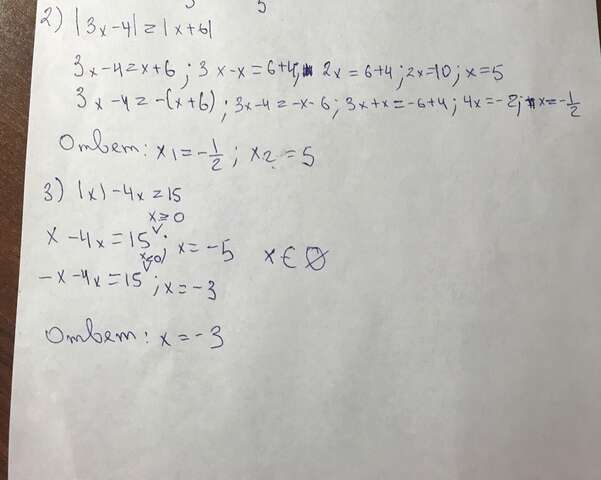 2) |3x-4|=|x+6|
3x-4=x+6; 3x-x=6+4; 2x=6+4; 2x=10; x=5
3x-4=-(x+6); 3x-4=-x-6; 3x+x=-6+4; 4x=-2; x=-1/2
Ответ: x1=-1/2; x2=5
3) |x|-4x=15
x≥0
x-4x=15; x=-5 x∈∅
x<0
-x-4x=15; x=-3
Ответ: x=-3